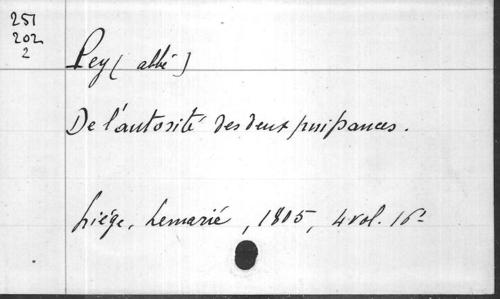 251
202
2
Pey (abbé)
De l'autorité des deux puissances.
Liége, Lemarié, 1805, 4 vol. 16º